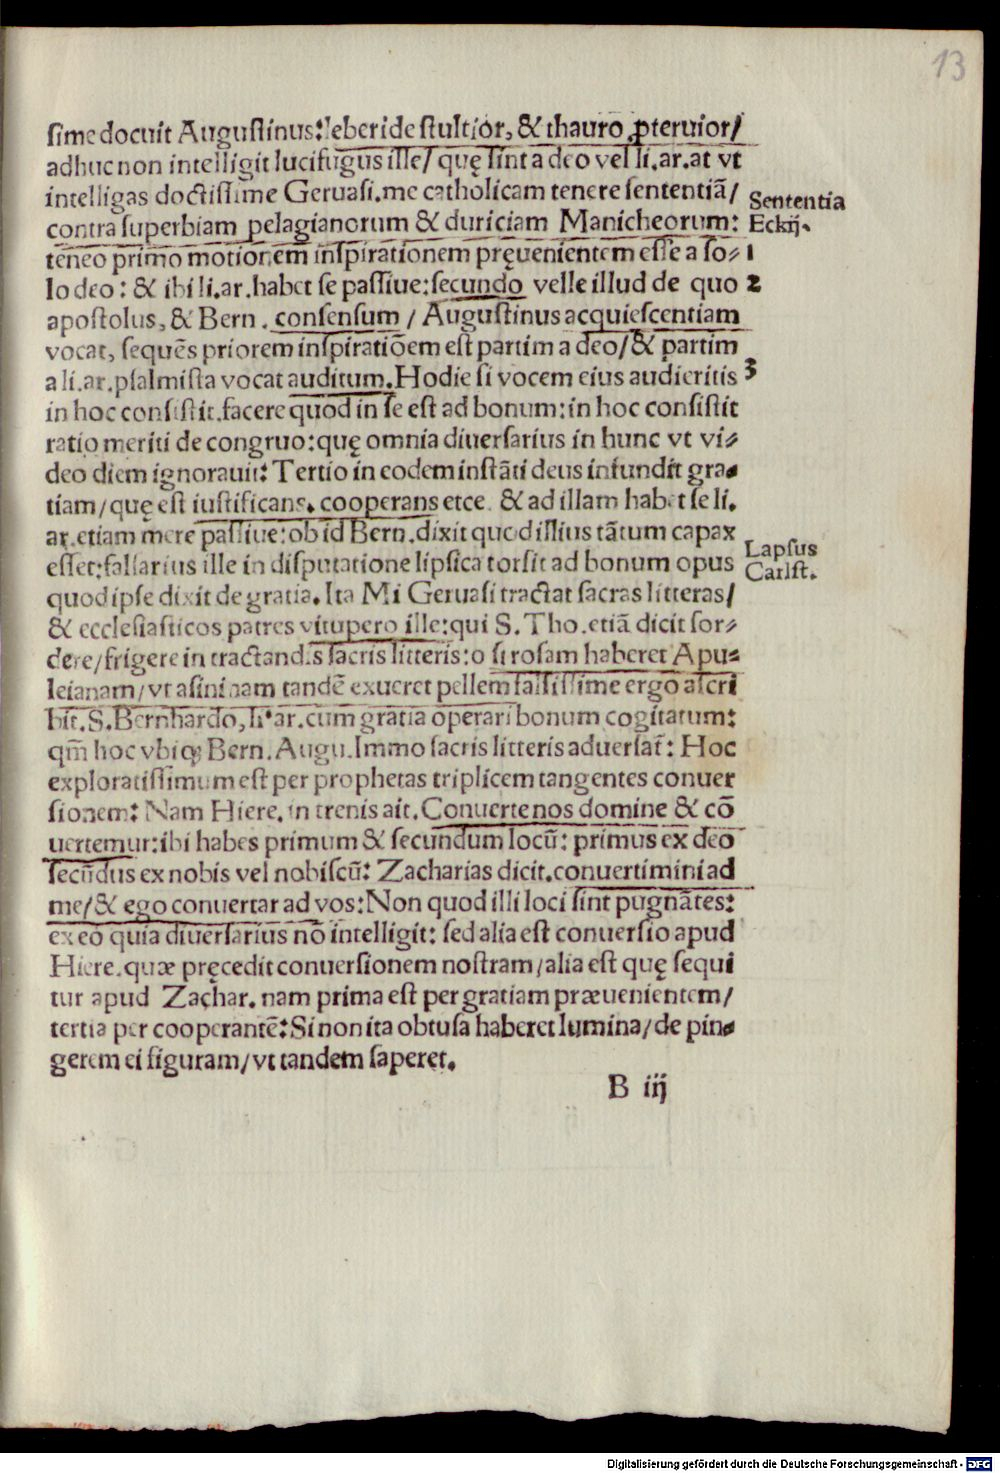 13
sime docuit Augustinus: leberide stultior, & thauro ꝓteruior/
adhuc non intelligit lucifugus ille/ quę sint a deo vel li.ar.at vt
intelligas doctissime Geruasi.me catholicam tenere sententiā/
Sententia
contra superbiam pelagianorum & duriciam Manicheorum:
Eckij.
teneo primo motionem inspirationem pręuenientem esse a so⸗ 1
lo deo: & ibi li.ar.habet se passiue: secundo velle illud de quo 2
apostolus, & Bern. consensum / Augustinus acquiescentiam
vocat, sequēs priorem inspiratiōem est partim a deo/ & partim
a li.ar.psalmista vocat auditum. Hodie si vocem eius audieritis 3
in hoc consistit.facere quod in se est ad bonum: in hoc consistit
ratio meriti de congruo: quę omnia diuersarius in hunc vt vi⸗
deo diem ignorauit: Tertio in eodem instāti deus infundit gra⸗
tiam/ quę est iustificans. cooperans etce. & ad illam habet se li.
ar.etiam mere passiue: ob id Bern.dixit quod illius tātum capax
Lapsus
esset: falsarius ille in disputatione lipsica torsit ad bonum opus
Carlst.
quod ipse dixit de gratia. Ita Mi Geruasi tractat sacras litteras/
& ecclesiasticos patres vitupero ille: qui S. Tho.etiā dicit sor⸗
dere/frigere in tractandis sacris litteris: o si rosam haberet Apu⸗
leianam/ vt asininam tandē exueret pellem falsissime ergo ascri
bit.S.Bernhardo, li.ar.cum gratia operari bonum cogitatum:
qm̄ hoc vbiqꝫ Bern. Augu. Immo sacris litteris aduersat̄: Hoc
exploratissimum est per prophetas triplicem tangentes conuer
sionem: Nam Hiere. in trenis ait. Conuerte nos domine & cō
uertemur: ibi habes primum & secundum locū: primus ex deo
secūdus ex nobis vel nobiscū: Zacharias dicit.conuertimini ad
me/ & ego conuertar ad vos: Non quod illi loci sint pugnātes:
ex eo quia diuersarius nō intelligit: sed alia est conuersio apud
Hiere.quæ pręcedit conuersionem nostram/alia est quę sequi
tur apud Zachar. nam prima est per gratiam præuenientem/
tertia per cooperantē: Si non ita obtusa haberet lumina/ de pin⸗
gerem ei figuram/ vt tandem saperet.
B iij
Digitalisierung gefördert durch die Deutsche Forschungsgemeinschaft - DFG